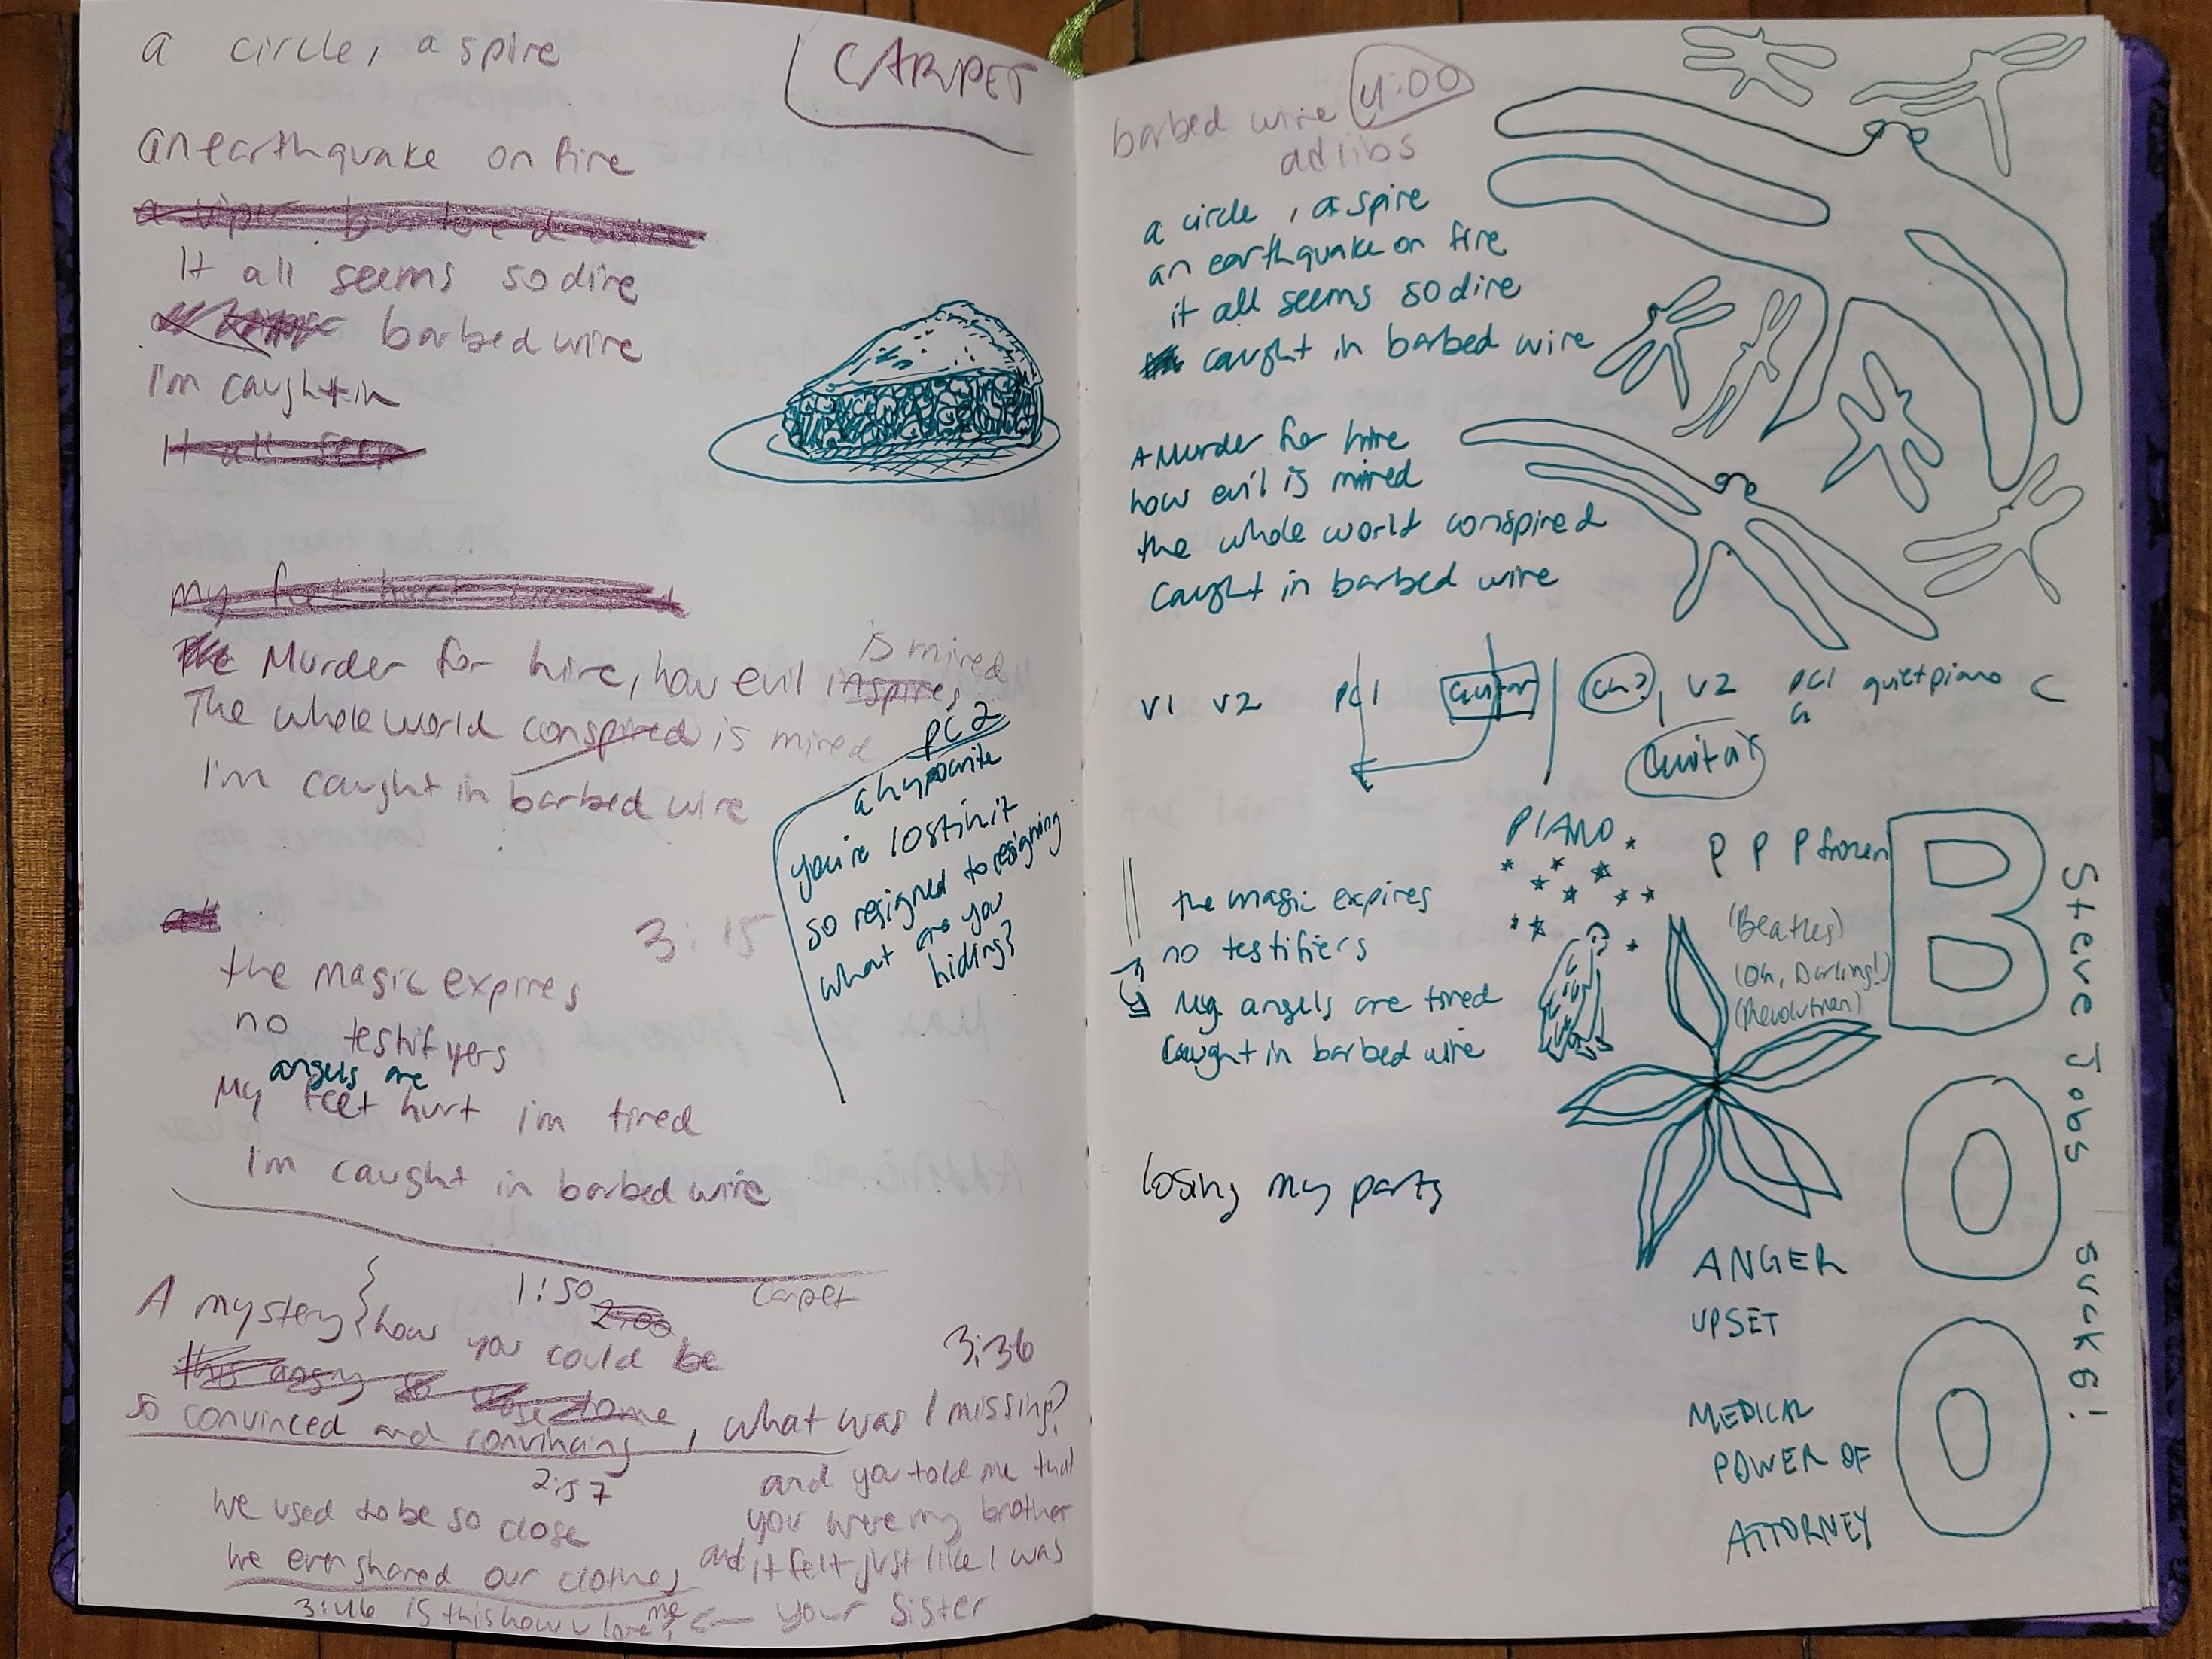 a circle, a spire
CARPET
an earthquake on fire
It all seems so dire
barbed wire
I'm caught in
It all seem
The Murder for hire, how evil inspires
is mired
The whole world conspired is mired
I'm caught in barbed wire
PC 2
a hypocrite
you're lost in it
so resigned to resigning
what are you
hiding?
all
3:15
the magic expires
no testifyers
angels are
My feet hurt i'm tired
I'm caught in barbed wire
1:50 2:00 carpet
A mystery how you could be
3:36
this angry so
so convinced and convincing, what was I missing?
2:57
We used to be so close
We even shared our clothes
and you told me that
you were my brother
and it felt just like I was
your sister
3:46 is this how u love me?
barbed wire 4:00
adlibs
a circle, a spire
an earthquake on fire
it all seems so dire
caught in barbed wire
A Murder for hire
how evil is mired
the whole world conspired
Caught in barbed wire
V1 V2 PC1 Guitar Ch?, V2 PC1 quiet piano C
G
Guitar
PIANO
P P P frozen
(Beatles)
(Oh, Darling!)
(Revolution)
the magic expires
no testifiers
My angels are tired
Caught in barbed wire
losing my party
ANGER
UPSET
MEDICAL
POWER OF
ATTORNEY
BOO
Steve Jobs suck6!